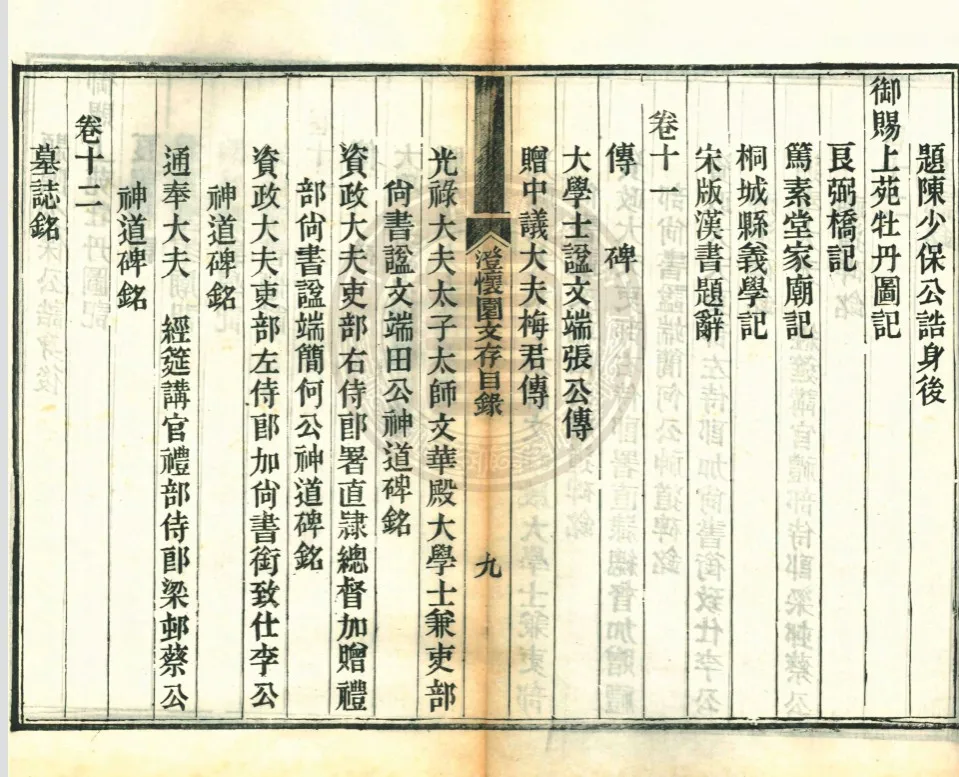 題陳少保公誥身後
御賜上苑牡丹圖記
良弼橋記
篤素堂家廟記
桐城縣義學記
宋版漢書題辭
卷十一
傳　碑
大學士諡文端張公傳
贈中議大夫梅君傳
澄懷園文存目錄　九
光祿大夫太子太師文華殿大學士兼吏部
尙書諡文端田公神道碑銘
資政大夫吏部右侍郎署直隷總督加贈禮
部尙書諡端簡何公神道碑銘
資政大夫吏部左侍郎加尙書銜致仕李公
神道碑銘
通奉大夫　經筵講官禮部侍郎梁邨蔡公
神道碑銘
卷十二
墓誌銘